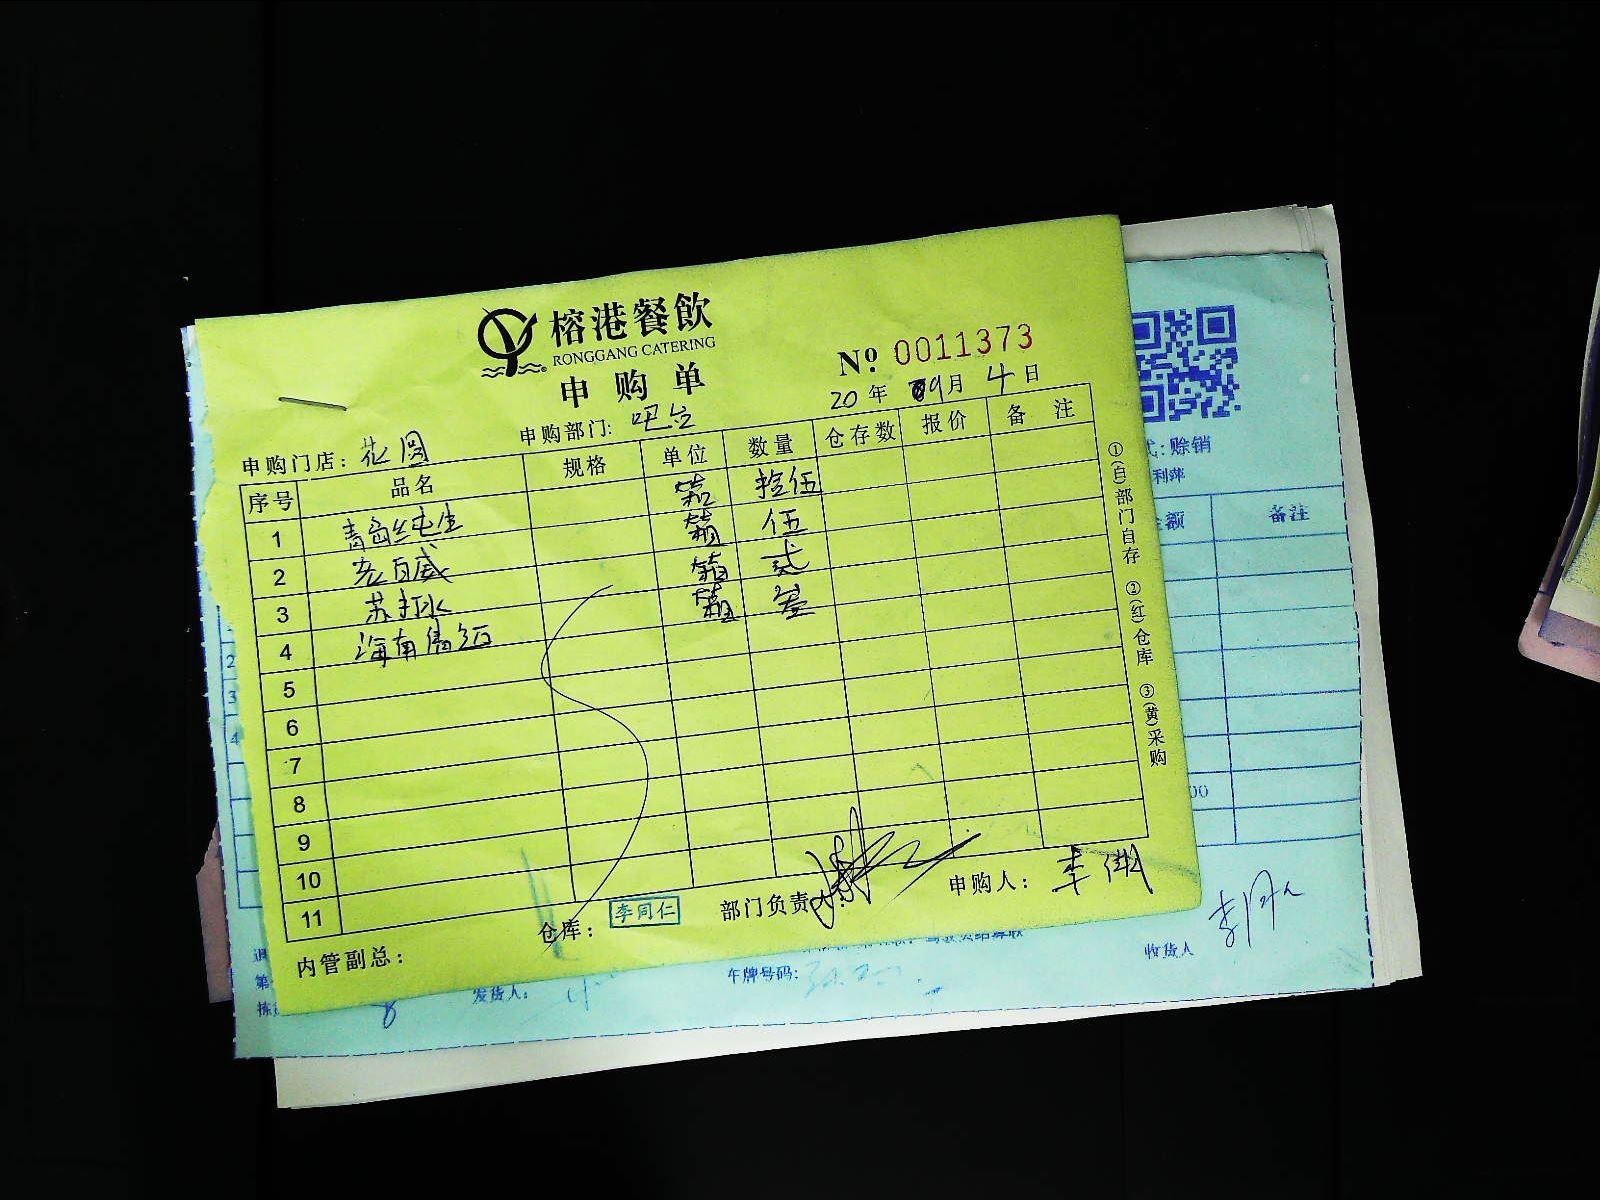 榕港餐飲
RONGGANG CATERING
申购单
№ 0011373
20年09月4日
申购门店：花圆 申购部门：吧台
序号 品名 规格 单位 数量 仓存数 报价 备注
1 青岛纯生 箱 拾伍
2 老百威 箱 伍
3 苏打水 箱 贰
4 海南 箱 壹
5
6
7
8
9
10
11
内管副总： 仓库：李同仁 部门负责人： 申购人：李
①(白)部门自存 ②(红)仓库 ③(黄)采购
式：赊销
利萍
金额 备注
2
3
4
00
第
发货人： 车牌号码： 收货人